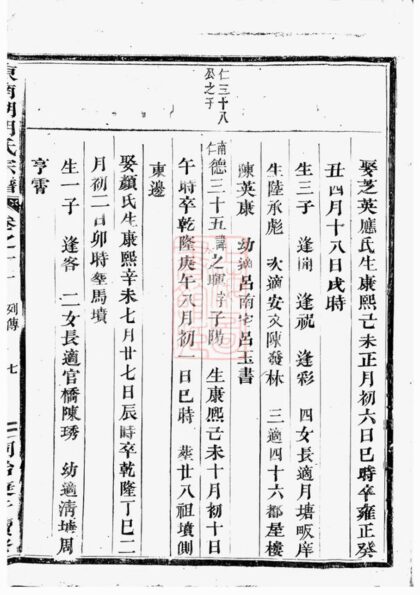 仁三十八
公之子
娶芝英應氏生康熙己未正月初六日巳時卒雍正癸
丑四月十八日戌時
生三子 逢開 逢祝 逢彩 四女長適月塘畈庠
生陸承彪 次適安文陳發林 三適四十六都屋樓
陳英康 幼適呂南宅呂玉書
德三十五諱之 字子陽 生康熙己未十月初十日
午時卒乾隆庚午八月初一日巳時 葬廿八祖墳側
東邊
娶顏氏生康熙辛未七月廿七日辰時卒乾隆丁巳二
月初二日卯時塟馬墳
生一子 逢客 二女長適官橋陳琇 幼適清塘周
亨霄
氏宗譜 卷之十一 列傳 七